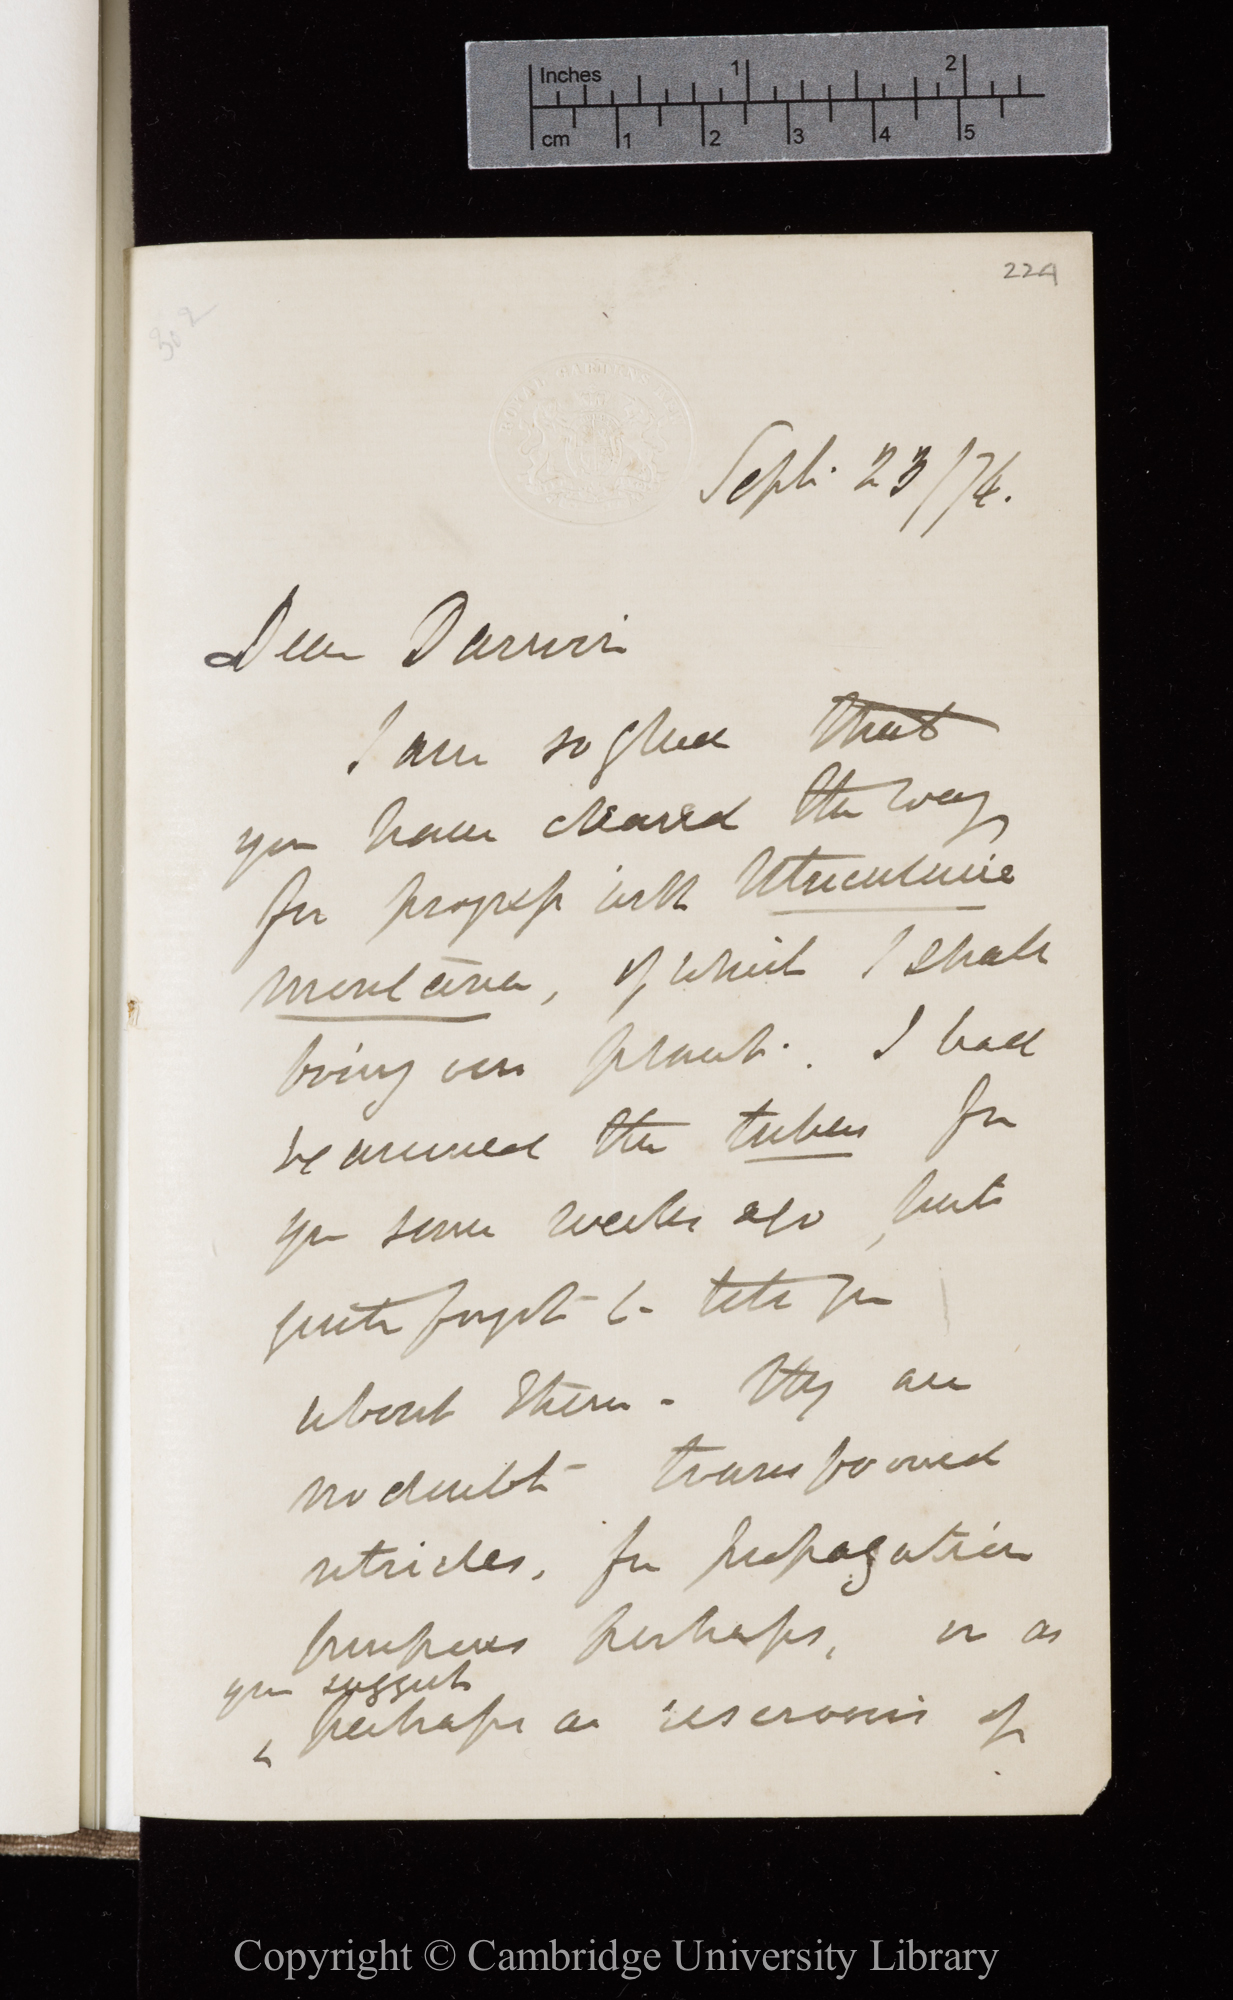 Inches 1 2
cm 1 2 3 4 5
224
302
ROYAL GARDENS KEW
Sept. 23/74.
Dear Darwin
I am so glad that
you have cleared the way
for progress with Utricularia
montana, of which I shall
bring one plant. I had
examined the tubers for
you some weeks ago, but
quite forgot to tell you
about them. They are
no doubt transformed
utricles, for propagation
purposes perhaps, or as
you suggest
perhaps as reservoirs of
Copyright © Cambridge University Library